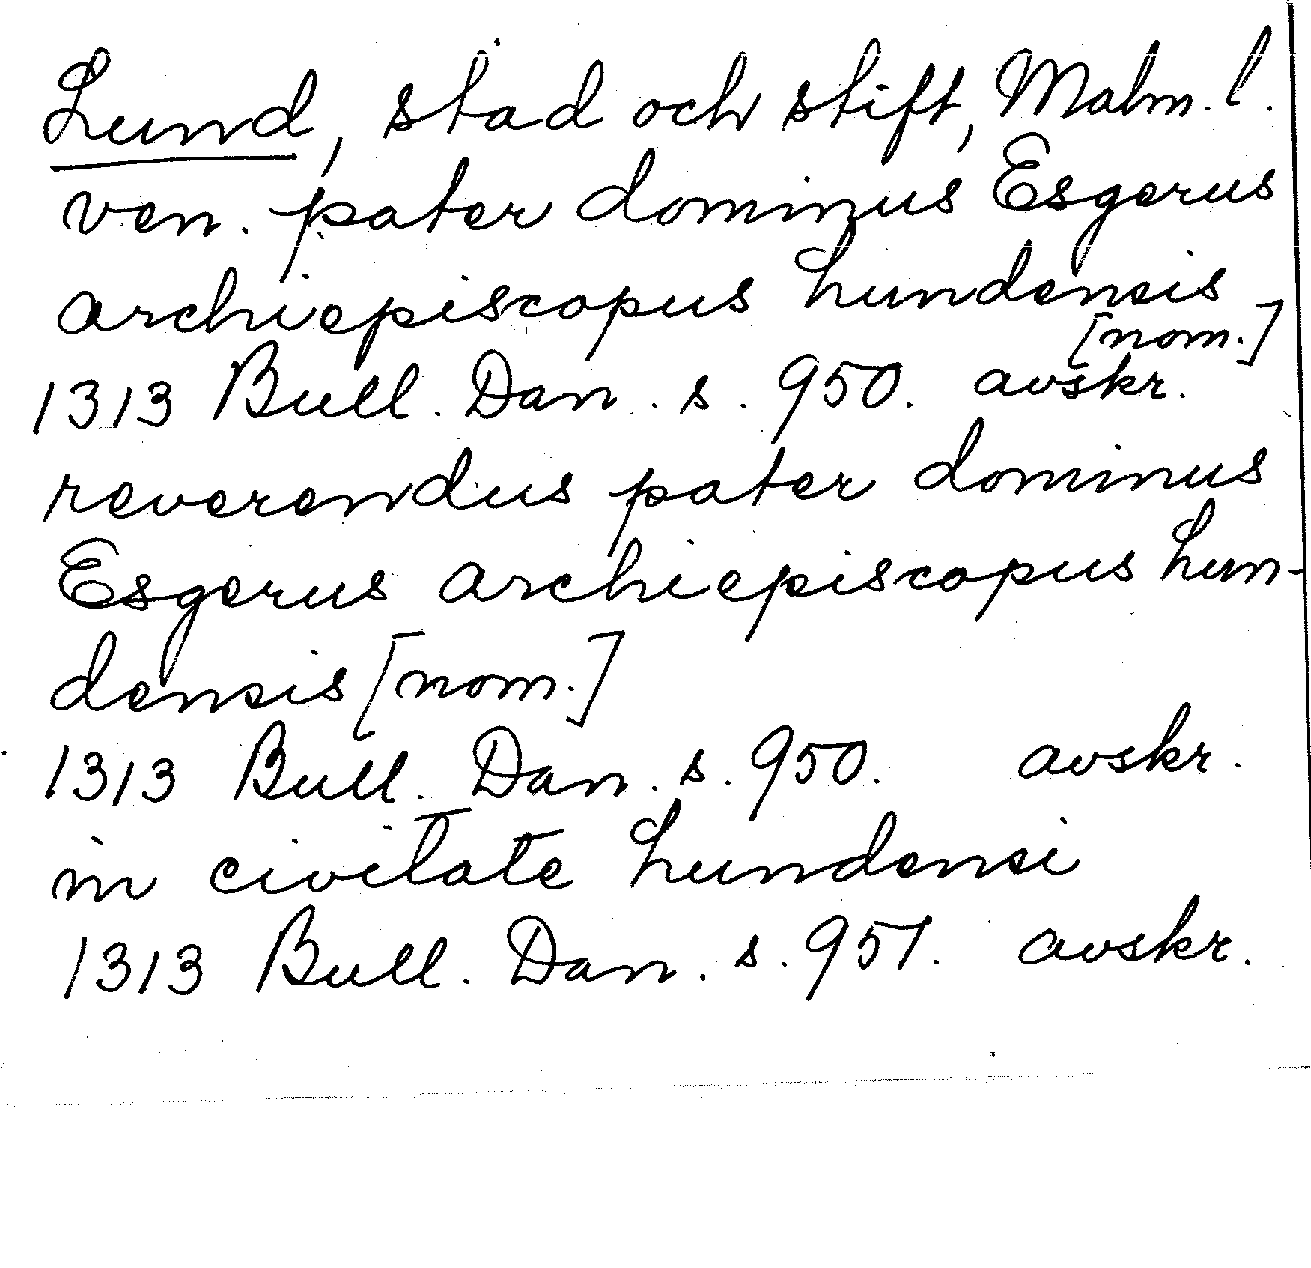 Lund, stad och stift, Malm. l.
ven. pater dominus Esgerus
archiepiscopus Lundensis
[nom.]
1313 Bull. Dan. s. 950. avskr.
reverendus pater dominus
Esgerus archiepiscopus Lun-
densis [nom.]
1313 Bull. Dan. s. 950. avskr.
in civitate Lundensi
1313 Bull. Dan. s. 951. avskr.